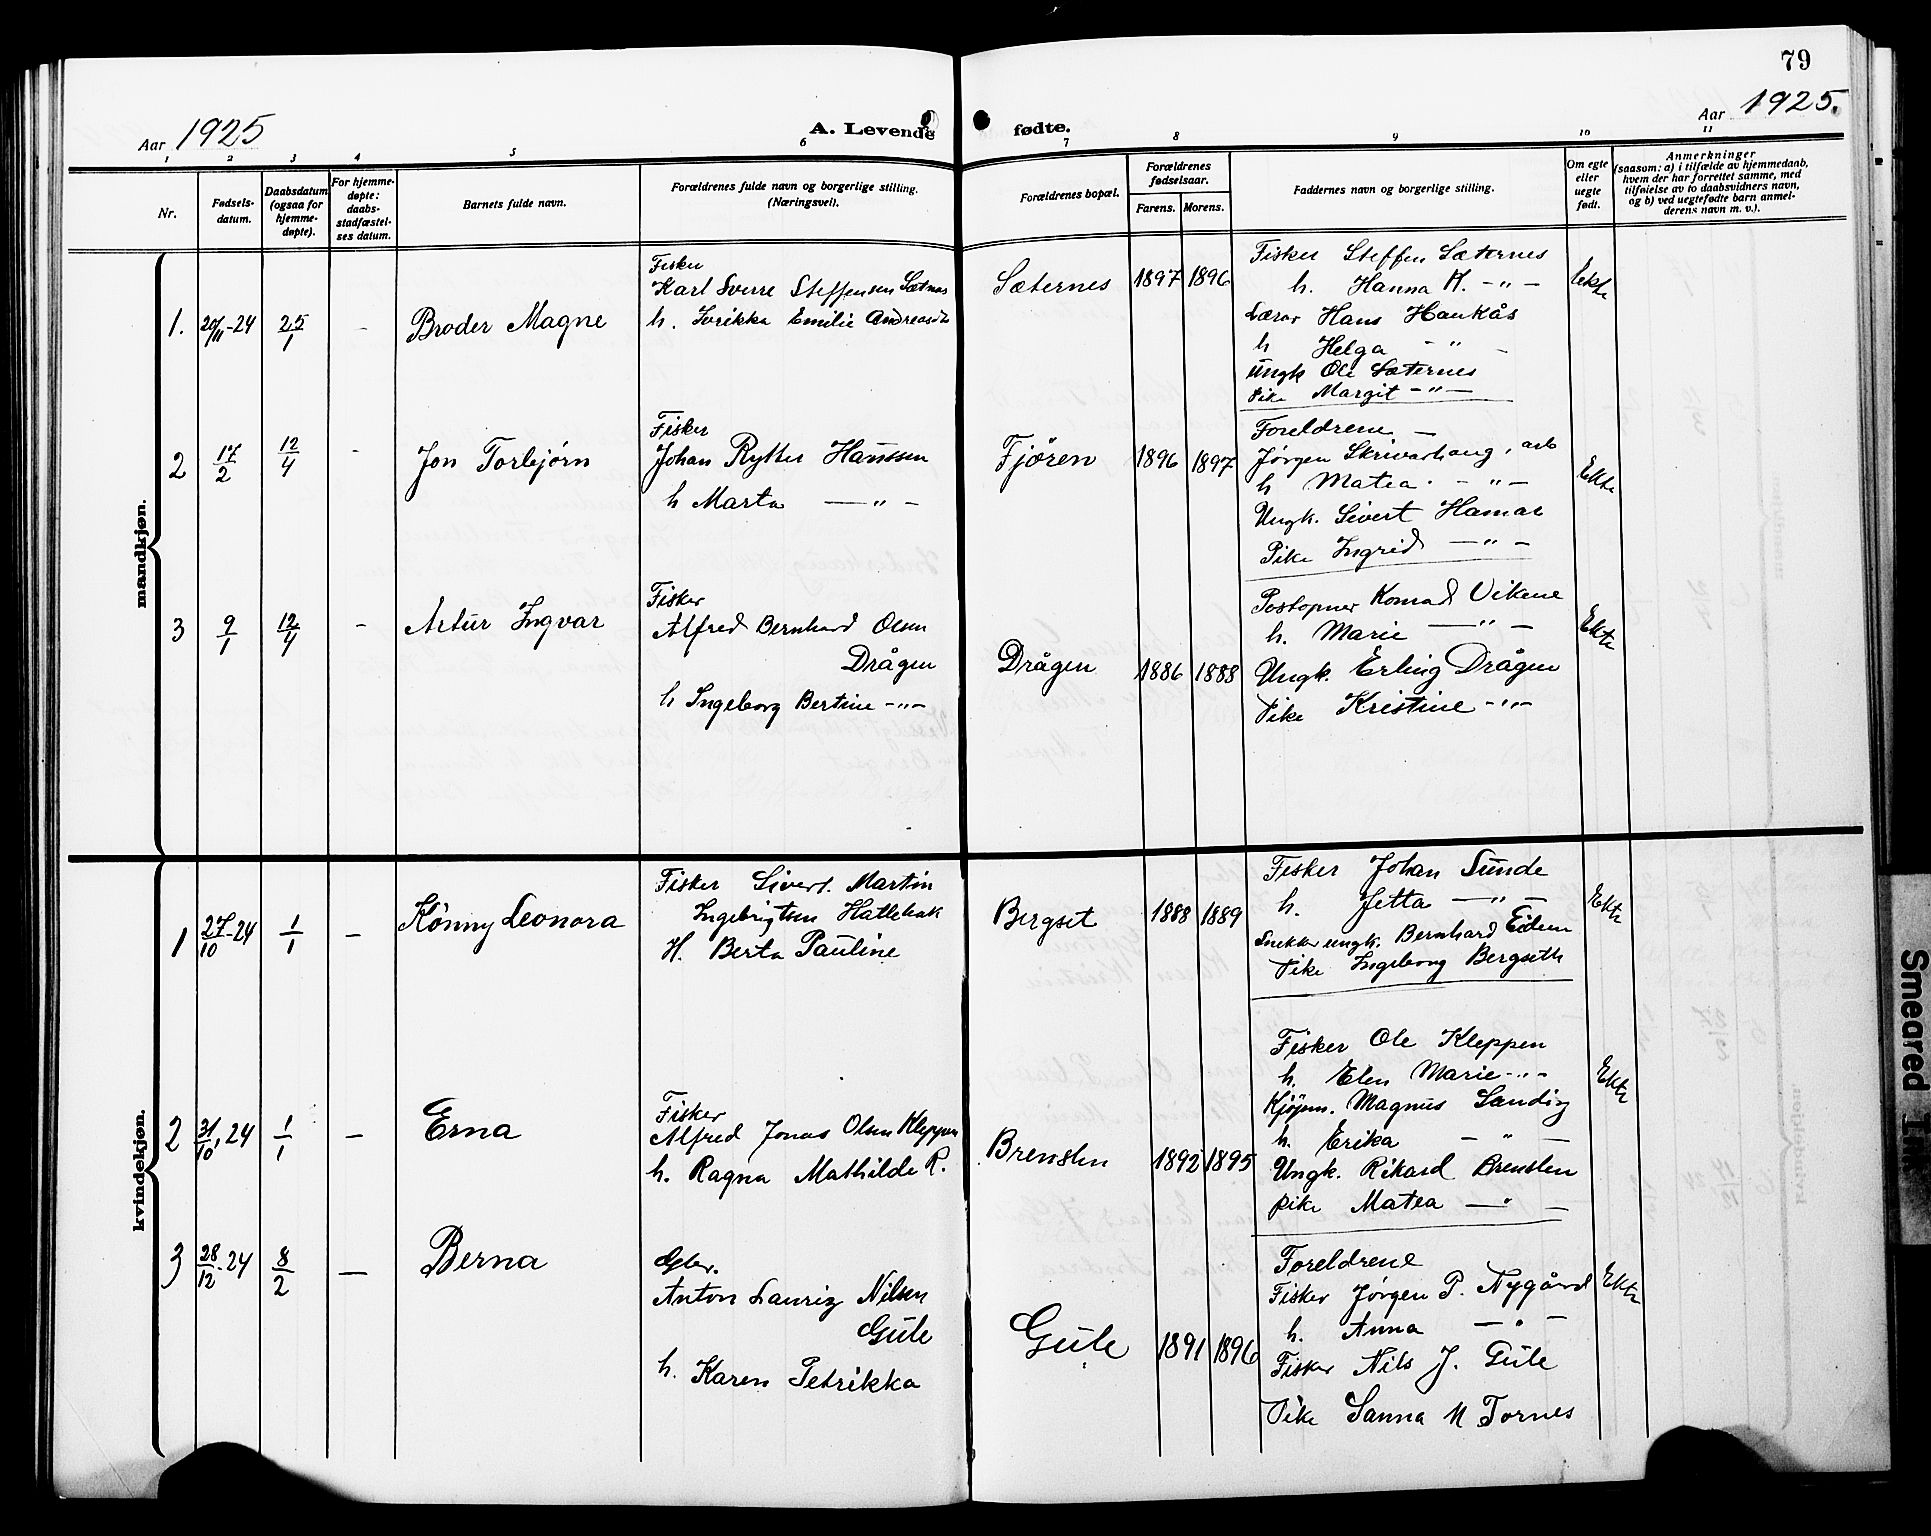 79
Aar 1925
A. Levende fødte.
Aar 1925.
1 2 3 4 5 6 7 8 9 10 11
Nr.
Fødsels-
datum.
Daabsdatum
(ogsaa for
hjemme-
døpte).
For hjemme-
døpte:
daabs-
stadfæstel-
ses datum.
Barnets fulde navn.
Forældrenes fulde navn og borgerlige stilling.
(Næringsvei).
Forældrenes bopæl.
Forældrenes
fødselsaar.
Farens. Morens.
Faddernes navn og borgerlige stilling.
Om egte
eller
uegte
født.
Anmerkninger
(saasom: a) i tilfælde av hjemmedaab,
hvem der har forrettet samme, med
tilføielse av to daabsvidners navn,
og b) ved uegtefødte barn anmel-
derens navn m. v.).
mandkjøn.
1. 20/11-24 25/1 - Broder Magne
Fisker
Karl Sverre Steffensen Sætnes
h. Emilie
Sæternes 1897 1896
Fisker Steffen Sæternes
h. Hanna H. -"-
Lærer Hans Haukås
h Helga -"-
Ungk Ole Sæternes
Pike Margit -"-
Ekte
2 17/2 12/4 - Jon Torbjørn
Fisker
Johan Rytter Hanssen
h Marta -"-
Fjören 1896 1897
Foreldrene -
Jørgen Skrivarhaug, arb
h Matea -"-
Ungk. Sivert Hamar
Pike Ingrid -"-
Ekte
3 9/1 12/4 - Artur Ingvar
Fisker
Alfred Bernhard Olsen
Drågen
h Ingeborg Bertine -"-
Drågen 1886 1888
Postopner Konrad Vikene
h. Marie -"-
Ungk. Erling Drågen
Pike Kristine -"-
Ekte
kvindekjøn.
1 27/10-24 1/1 - Könny Leonora
Fisker Sivert Martin
Ingebrigtsen Hatlebak
H. Berta Pauline
Bergset 1888 1889
Fisker Johan Sunde
h. Jetta -"-
Snekker ungk. Bernhard Eidem
Pike Ingeborg Bergseth
Ekte
2 31/10-24 1/1 - Erna
Fisker
Alfred Jonas Olsen Kleppen
h. Ragna Mathilde R.
Brensten 1892 1895
Fisker Ole Kleppen
h. Elen Marie -"-
Kjöpm. Magnus Sandøy
h. Erika -"-
Ungk. Rikard Brensten
pike Matea -"-
Ekte
3 28/12-24 8/2 - Berna
Gbr.
Anton Lauriz Nilsen
Gule
h. Karen Petrikka
Gule 1891 1896
Foreldrene
Fisker Jørgen P. Nygård
h. Anna -"-
Fisker Nils J. Gule
Pike Sanna N Tornes
Ekte
Smeared Ink